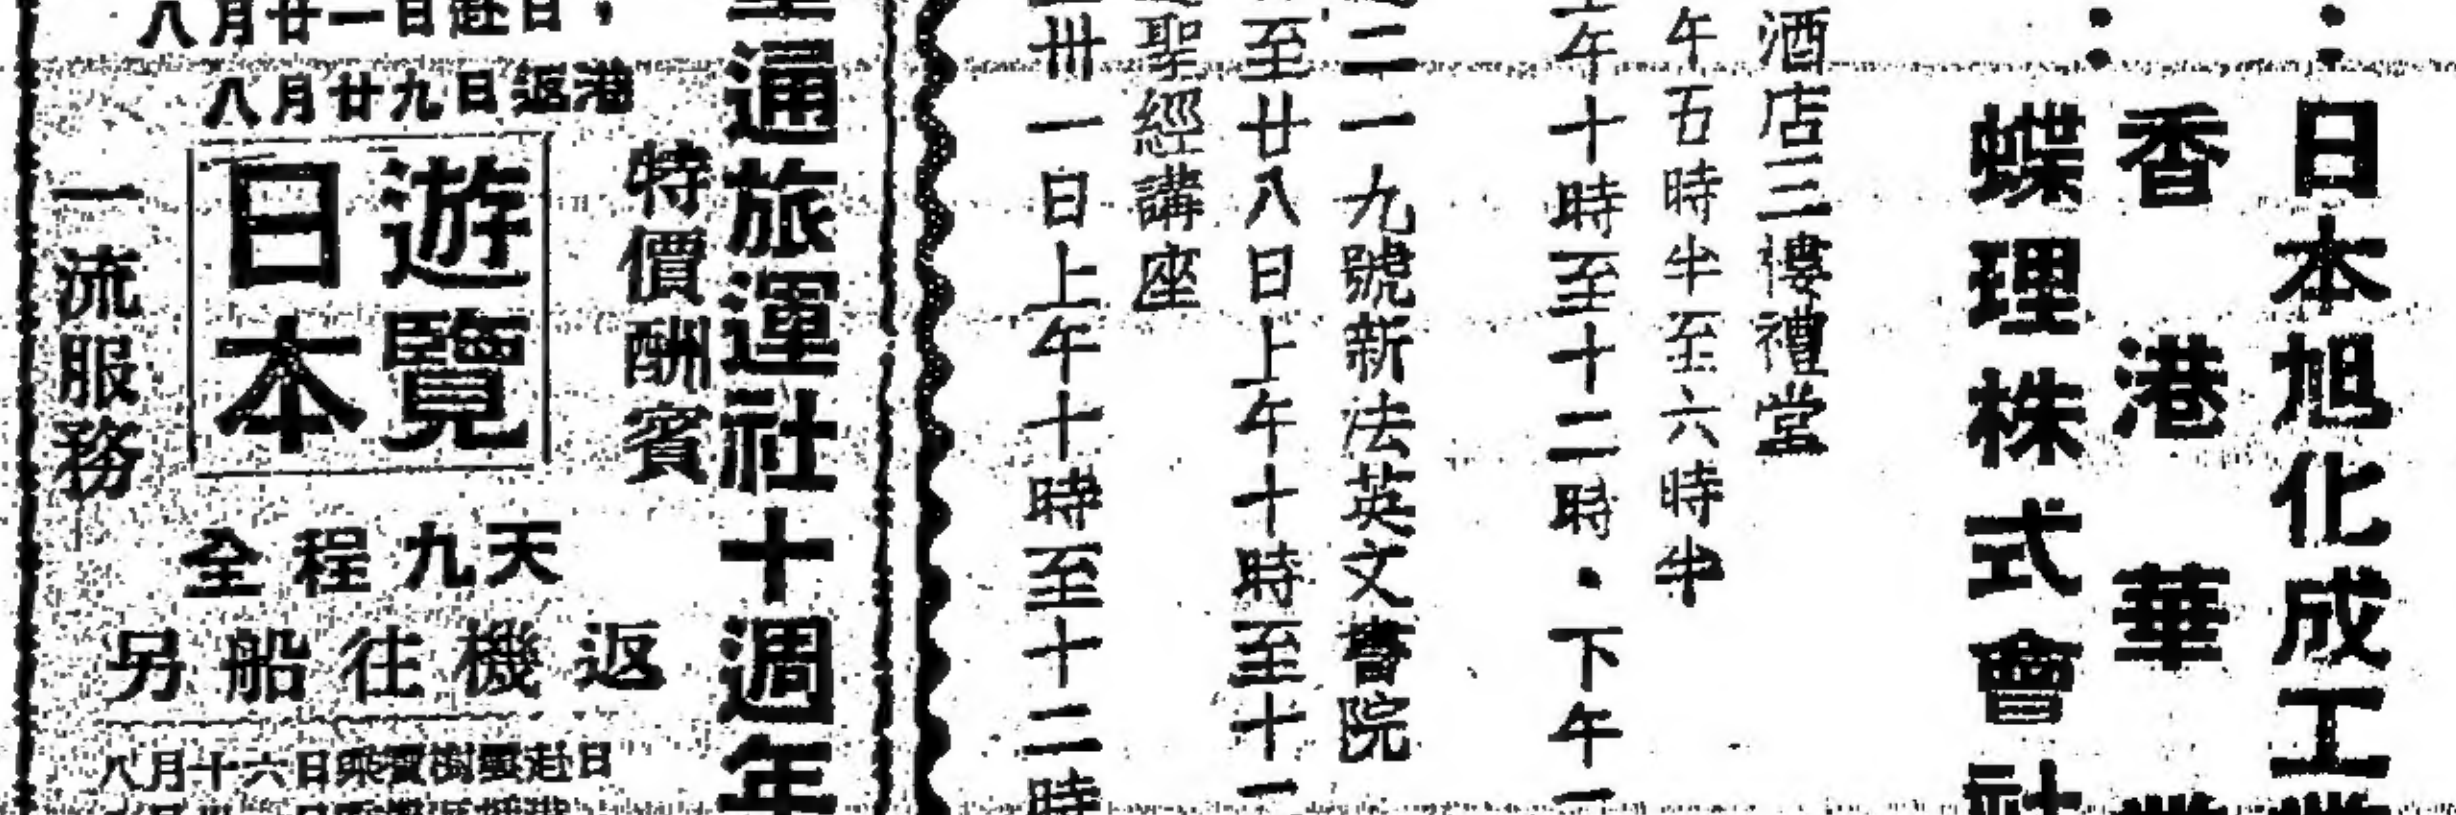 日本旭化成工業
香港華
蝶理株式會社
酒店三樓禮堂
午五時半至六時半
午十時至十二時・下午一
二一九號新法英文書院
至廿八日上午十時至十一
聖經講座
卅一日上午十時至十二時
通旅運社十週年
特價酬賓
八月廿一日赴日，
八月廿九日返港
遊覽
日本
一流服務
全程九天
另船往機返
八月十六日乘 樹 赴日